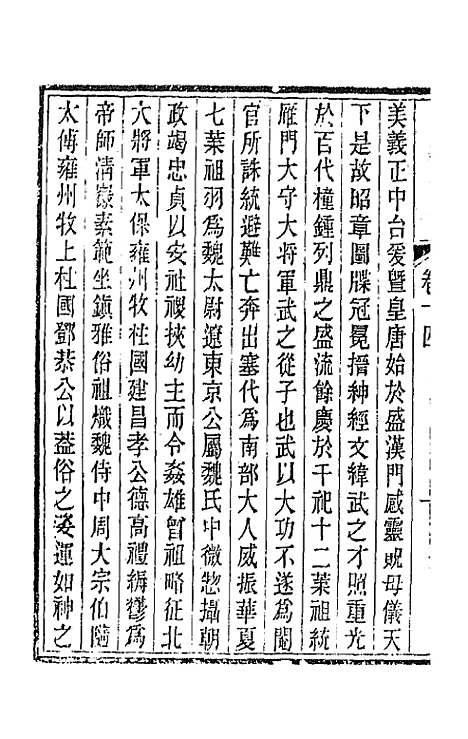 美義正中台爰暨皇唐始於盛漢門感靈貺母儀天
下是故昭章圖牒冠冕搢紳經文緯武之才照重光
於百代橦鍾列鼎之盛流餘慶於千祀十二葉祖統
雁門大守大將軍武之從子也武以大功不遂為閹
官所誅統避難亡奔出塞代為南部大人威振華夏
七葉祖羽為魏太尉遼東京公屬魏氏中微惣攝朝
政竭忠貞以安社稷挾幼主而令姦雄曾祖略征北
大將軍太保雍州牧柱國建昌孝公德高禮縟鬱為
帝師清嶽素範坐鎮雅俗祖熾魏侍中周大宗伯隨
太傅雍州牧上柱國鄧恭公以葢俗之姿運如神之
卷十四